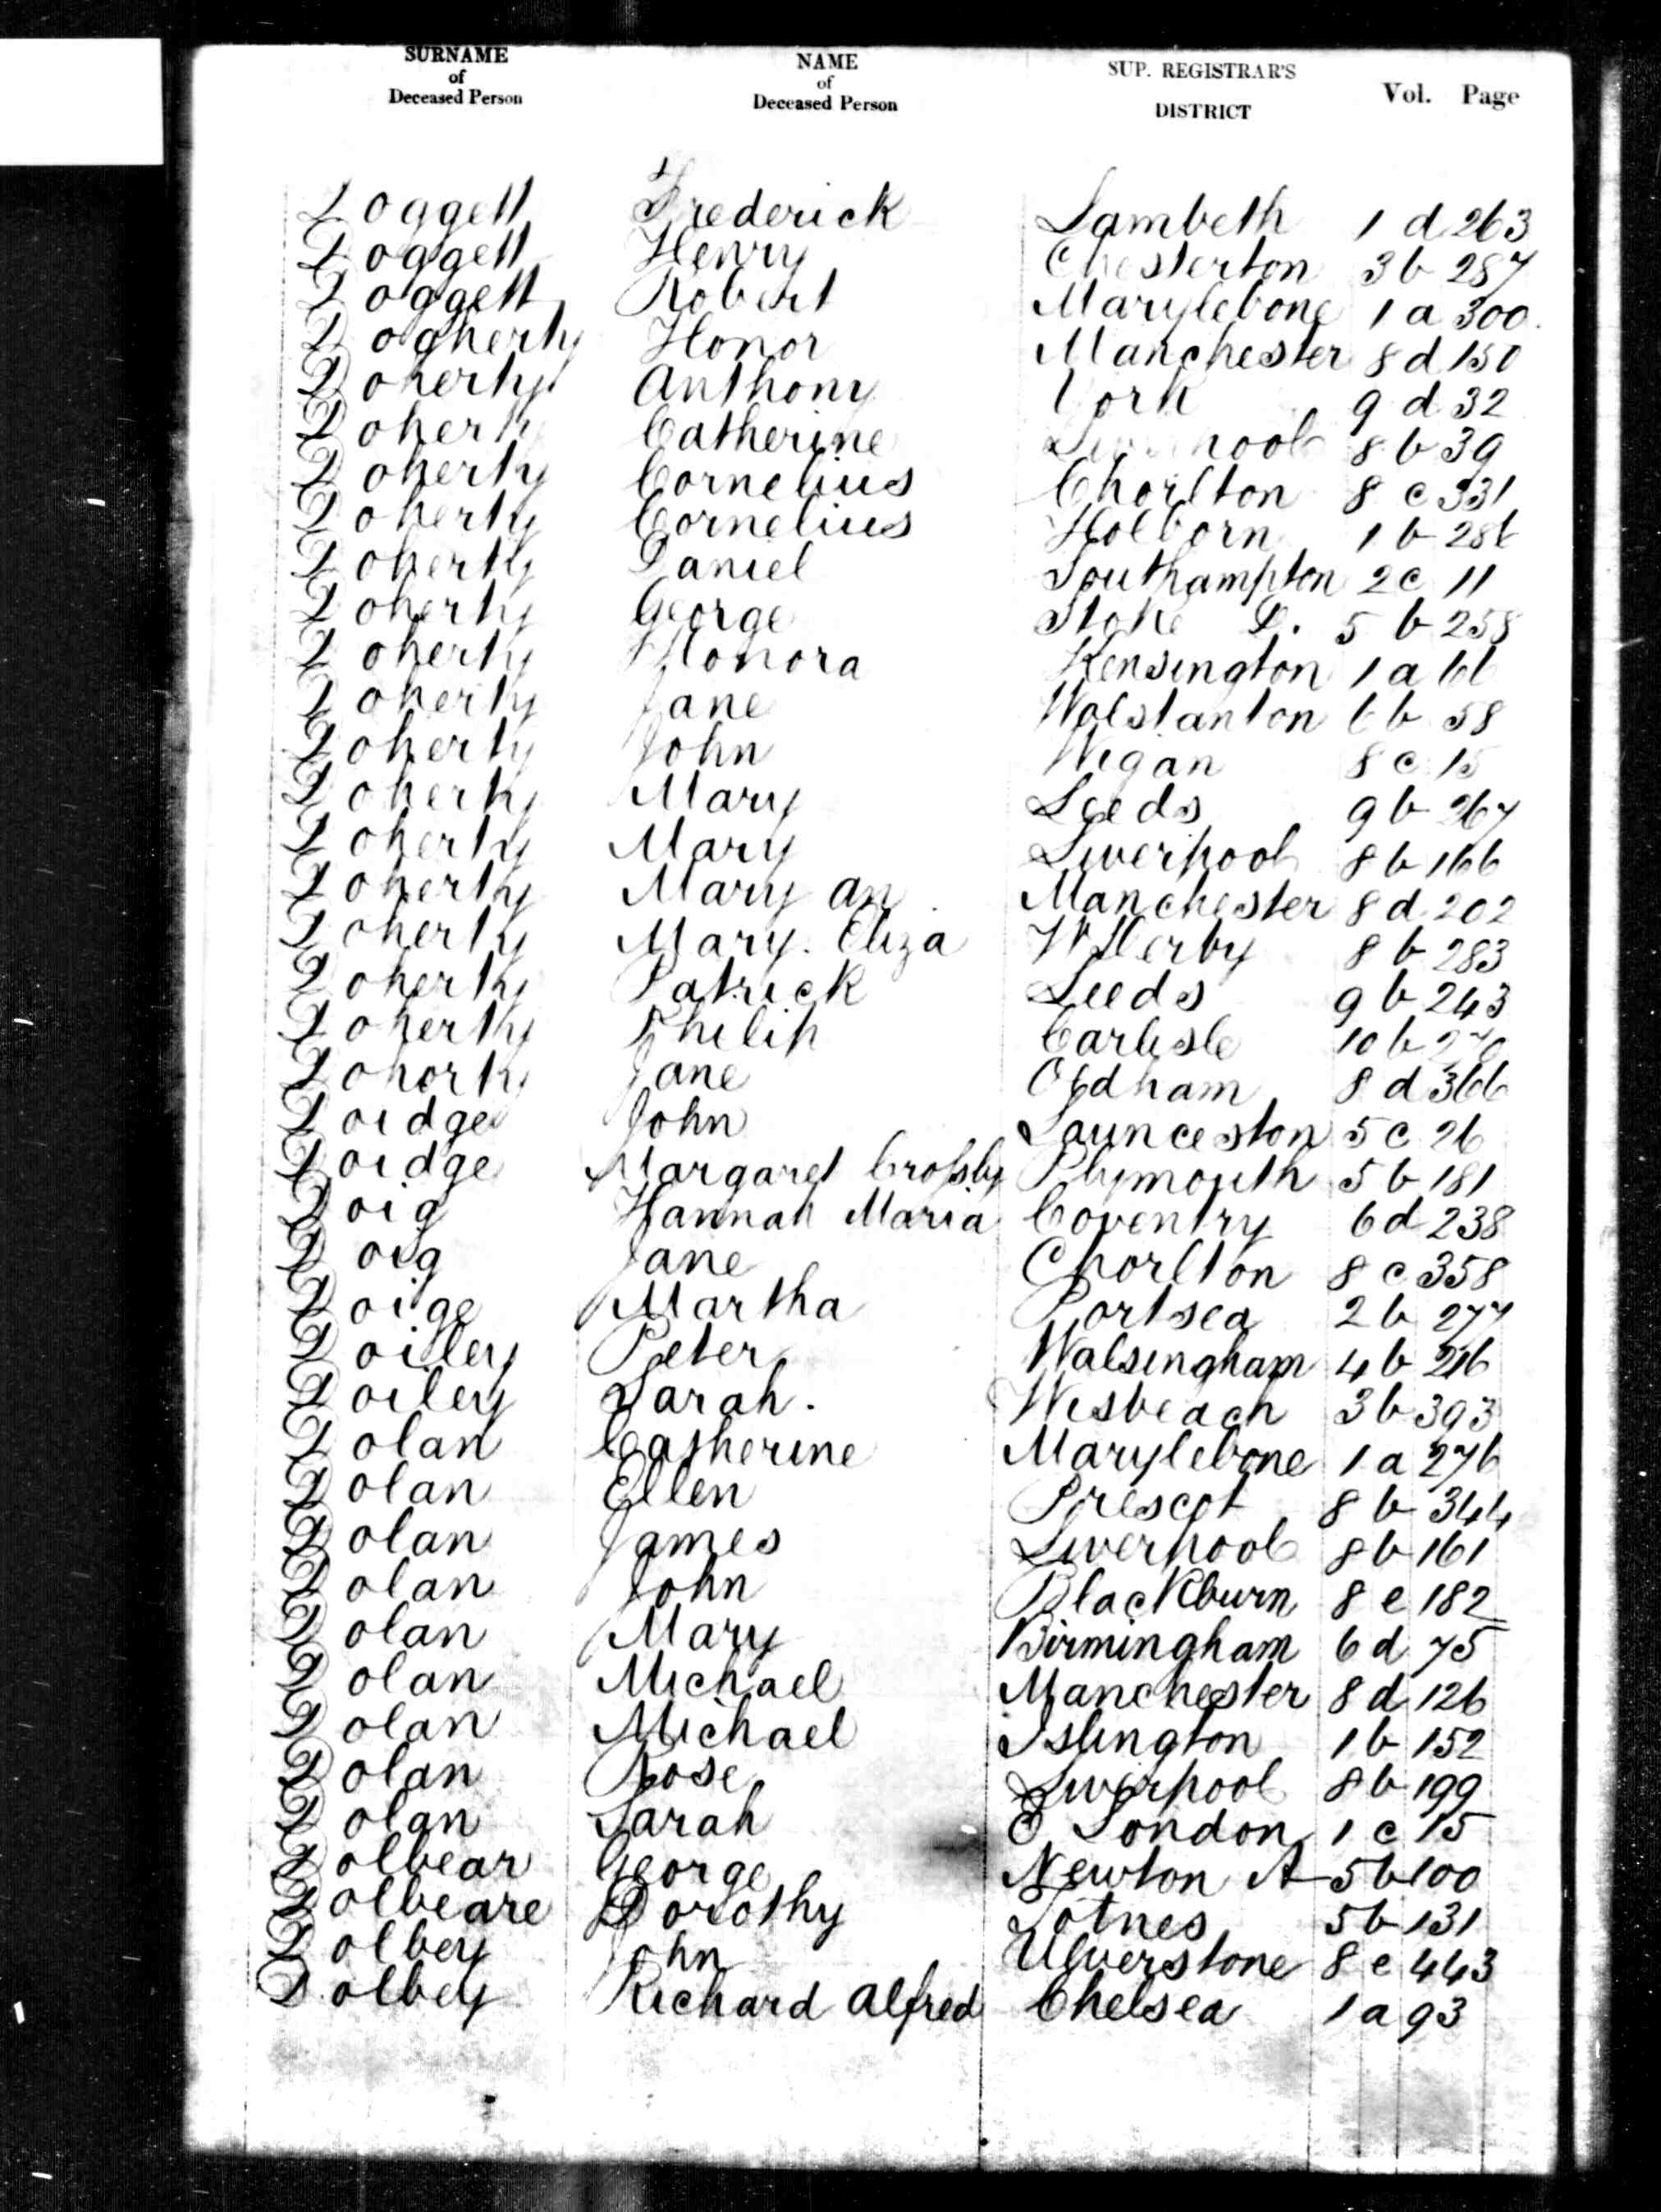 SURNAME of Deceased Person NAME of Deceased Person SUP. REGISTRAR'S DISTRICT Vol. Page
Doggett Frederick Lambeth 1 d 263
Doggett Henry Chesterton 3 b 287
Doggett Robert Marylebone 1 a 300
Dogherty Honor Manchester 8 d 150
Doherty Anthony York 9 d 32
Doherty Catherine Liverpool 8 b 39
Doherty Cornelius Chorlton 8 c 331
Doherty Cornelius Holborn 1 b 286
Doherty Daniel Southampton 2 c 11
Doherty George Stoke D. 5 b 258
Doherty Honora Kensington 1 a 66
Doherty Jane Wolstanton 6 b 58
Doherty John Wigan 8 c 15
Doherty Mary Leeds 9 b 267
Doherty Mary Liverpool 8 b 166
Doherty Mary An Manchester 8 d 202
Doherty Mary Eliza W Derby 8 b 283
Doherty Patrick Leeds 9 b 243
Doherty Philip Carlisle 10 b
Dohorty Jane Oldham 8 d 366
Doidge John Launceston 5 c 26
Doidge Margaret Crofsby Plymouth 5 b 181
Doig Hannah Maria Coventry 6 d 238
Doig Jane Chorlton 8 c 358
Doige Martha Portsea 2 b 277
Doiley Peter Walsingham 4 b 216
Doiley Sarah. Wisbeach 3 b 393
Dolan Catherine Marylebone 1 a 276
Dolan Ellen Prescot 8 b 344
Dolan James Liverpool 8 b 161
Dolan John Blackburn 8 e 182
Dolan Mary Birmingham 6 d 75
Dolan Michael Manchester 8 d 126
Dolan Michael Islington 1 b 152
Dolan Rose Liverpool 8 b 199
Dolan Sarah E London 1 c 15
Dolbear George Newton A 5 b 100
Dolbeare Dorothy Totnes 5 b 131
Dolbey John Ulverstone 8 e 443
Dolbey Richard Alfred Chelsea 1 a 93